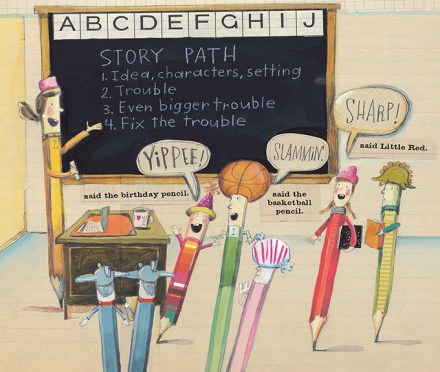 A B C D E F G H I J
STORY PATH
1. Idea, characters, setting
2. Trouble
3. Even bigger trouble
4. Fix the trouble
YIPPEE!
said the birthday pencil.
SLAMMIN!
said the
basketball
pencil.
SHARP!
said Little Red.